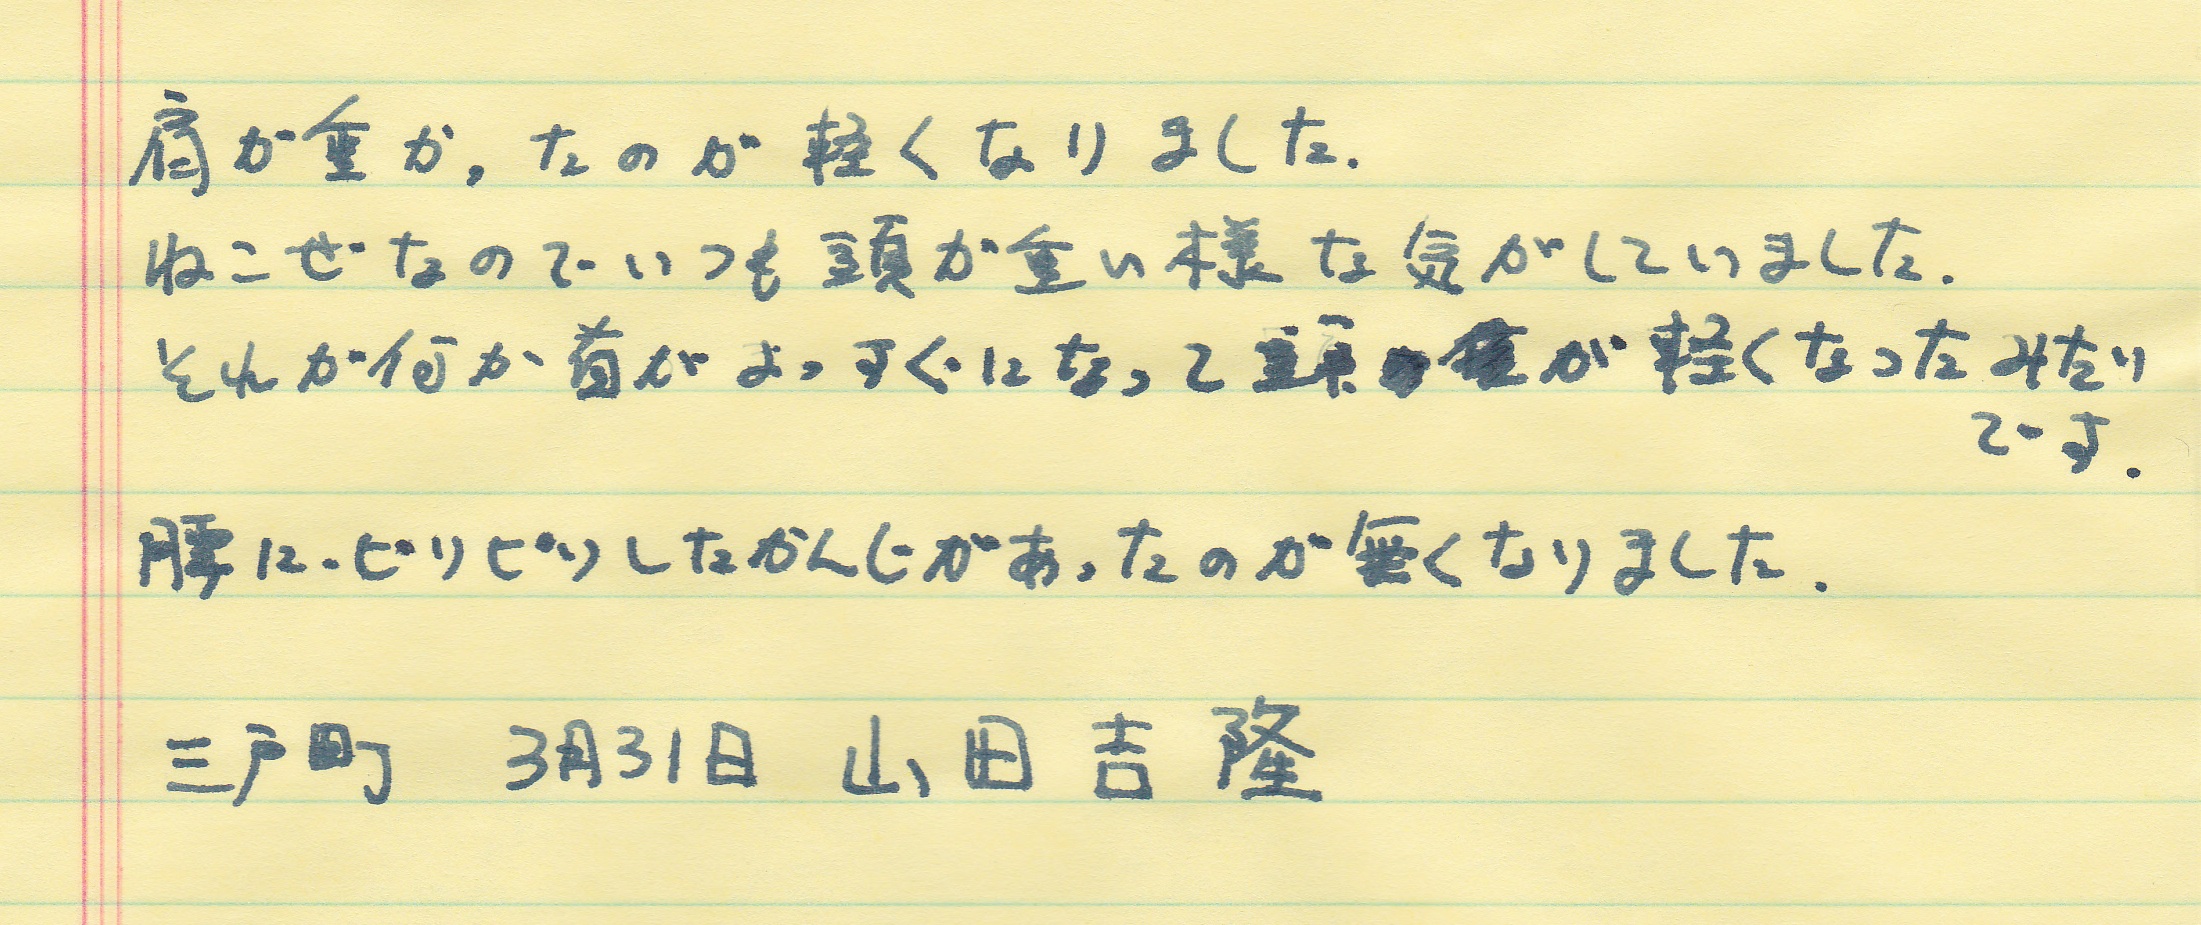 肩が重かったのが軽くなりました.
ねこぜなのでいつも頭が重い様な気がしていました.
それが何か首がまっすぐになって頭が軽くなったみたい
です.
腰に.ビリビリしたかんじがあったのが無くなりました.
三戸町 3月31日 山田吉隆